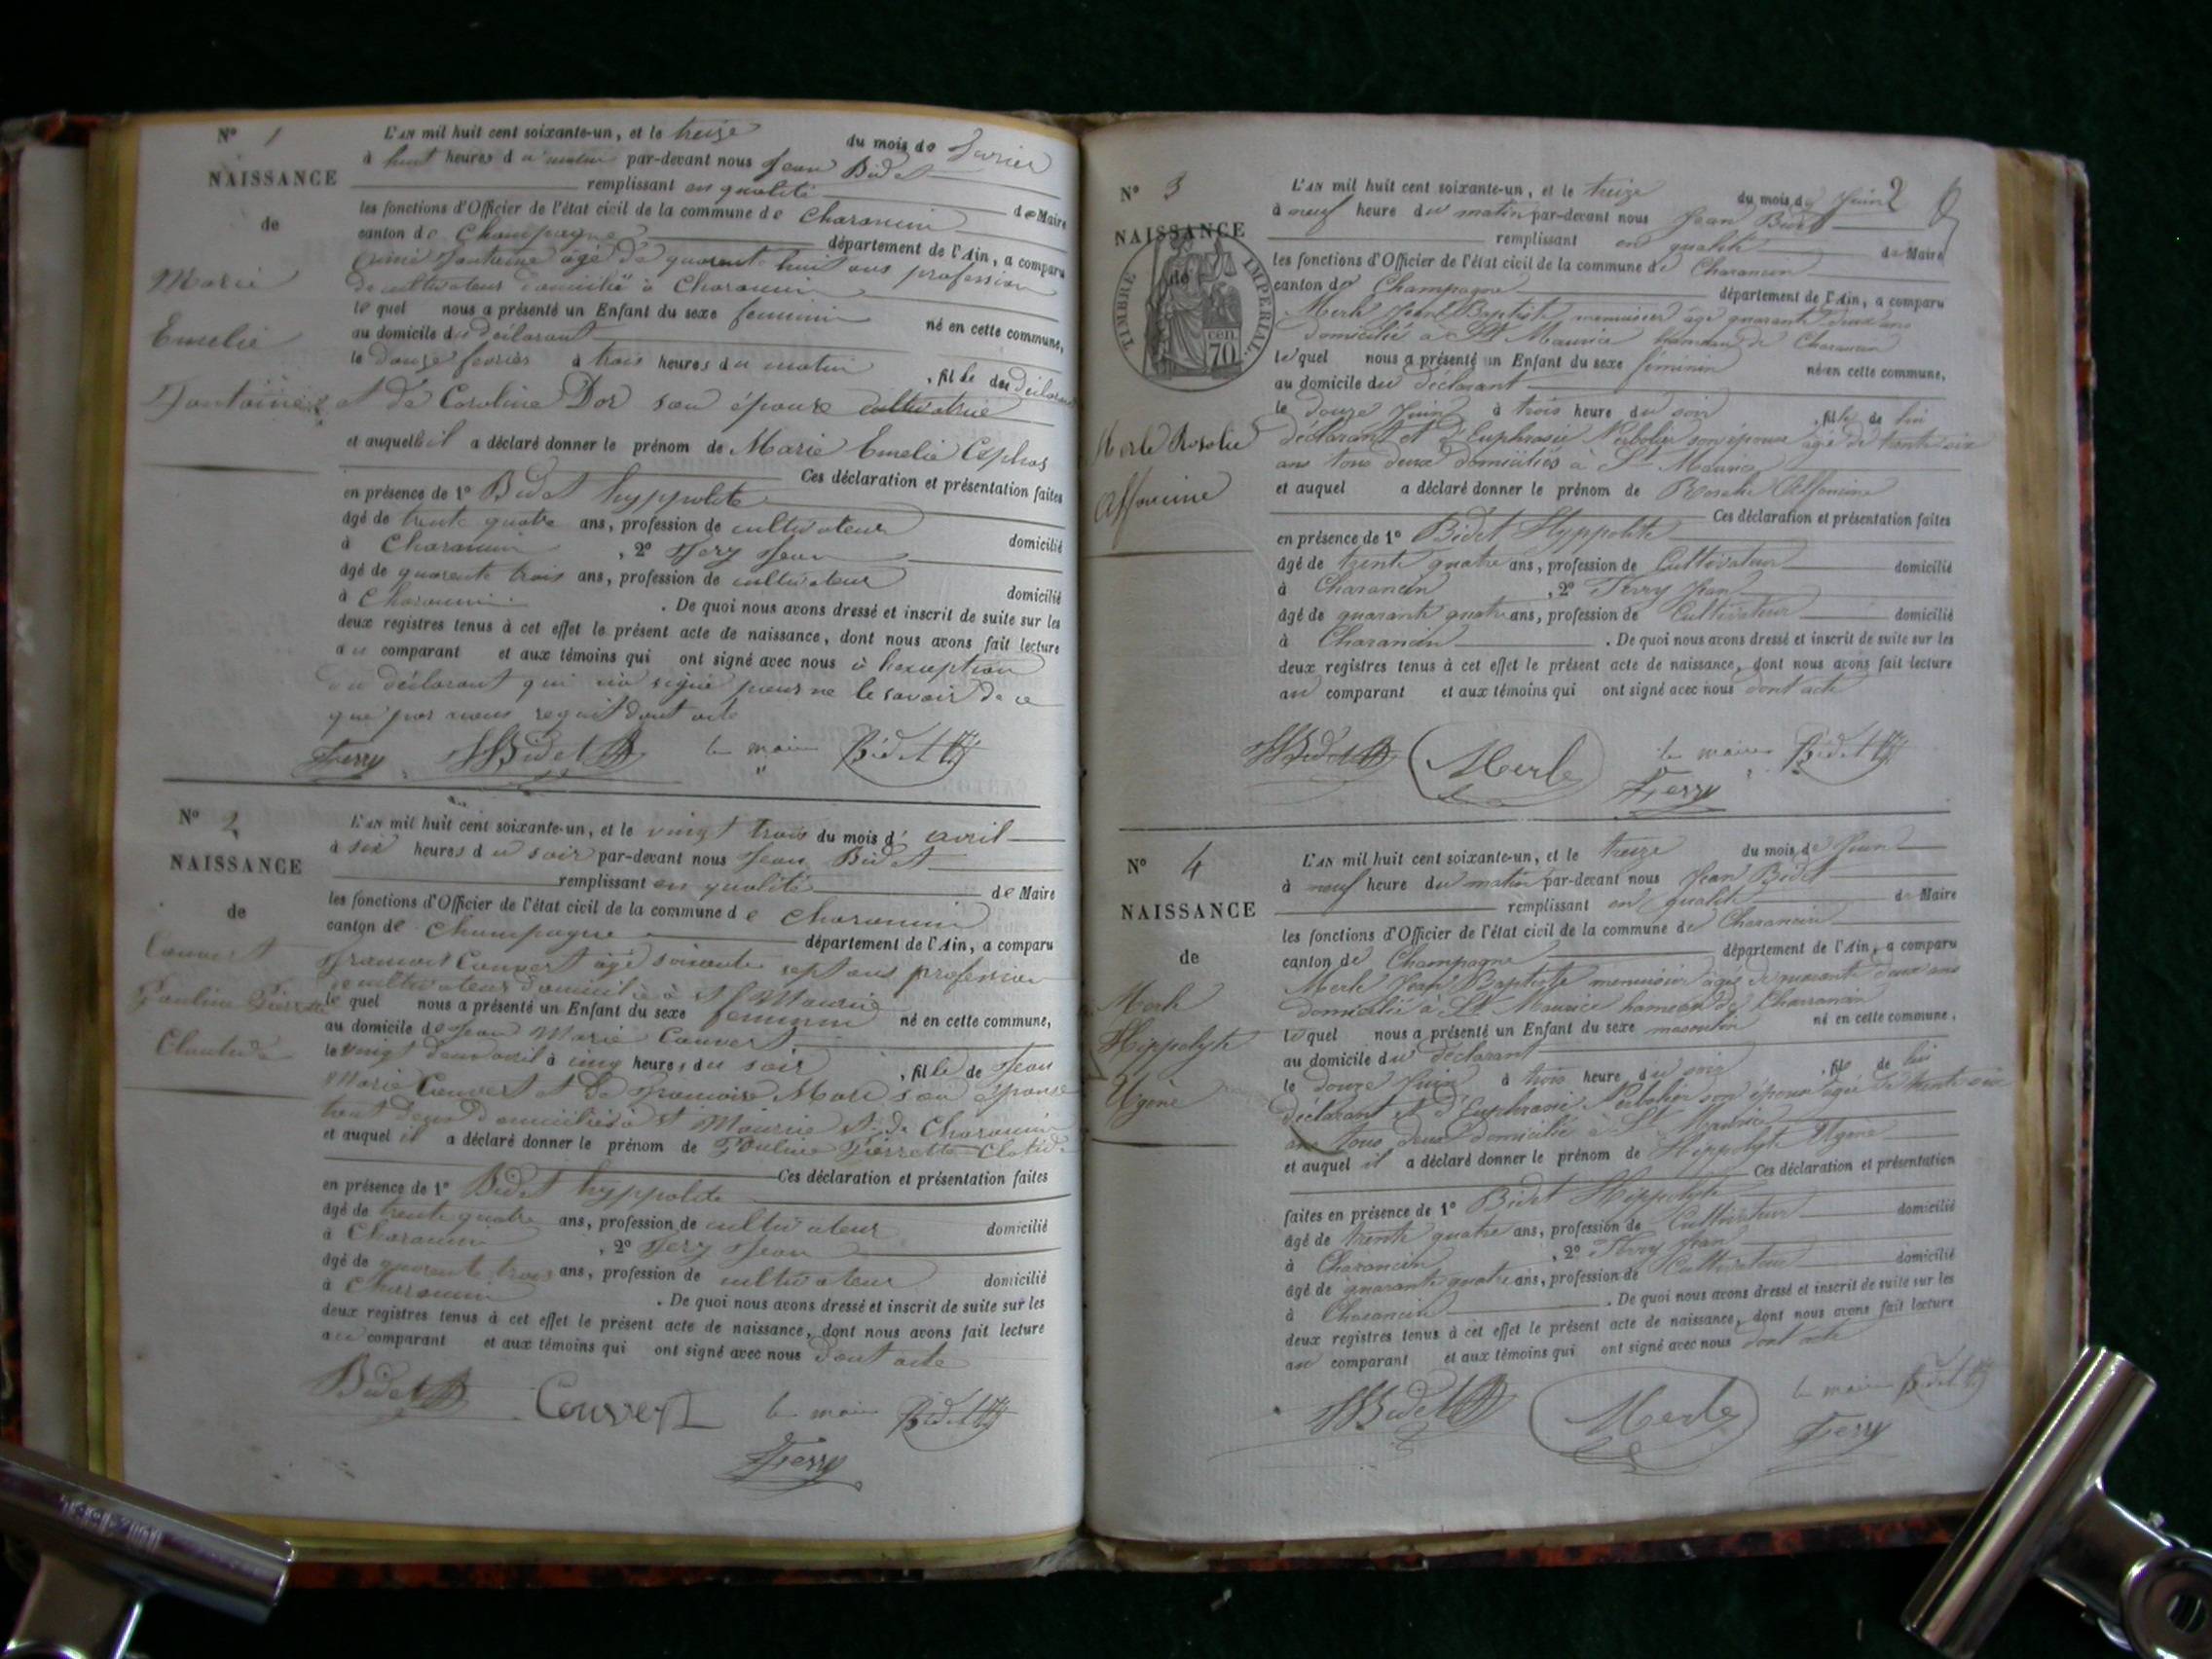 N° 1
NAISSANCE
de
Marie
Emelie
L'AN mil huit cent soixante-un, et le treize du mois de
à huit heures du matin par-devant nous Jean Bidet
remplissant en qualité de Maire
les fonctions d'Officier de l'état civil de la commune de Charancin
canton de Champagne département de l'Ain, a comparu
Fontaine agé de quarente huit ans profession
de cultivateur domicilié à Charancin
lequel nous a présenté un Enfant du sexe feminin né en cette commune,
au domicile du déclarant
le douze fevrier à trois heures du matin, fille du déclarant
et de Caroline Dor son épouse cultivatrice
et auquel il a déclaré donner le prénom de Marie Emelie
Ces déclaration et présentation faites
en présence de 1° Bidet hyppolite
âgé de trente quatre ans, profession de cultivateur domicilié
à Charancin, 2° Fery Jean
âgé de quarente trois ans, profession de cultivateur domicilié
à Charancin. De quoi nous avons dressé et inscrit de suite sur les
deux registres tenus à cet effet le présent acte de naissance, dont nous avons fait lecture
au comparant et aux témoins qui ont signé avec nous à l'exception
du déclarant qui n'a signé pour ne le savoir de ce
que par nous requit dont acte
Ferry Bidet le maire Bidet
N° 2
NAISSANCE
de
Couvert
Pauline Pierrette
L'AN mil huit cent soixante-un, et le vingt trois du mois d'avril
à six heures du soir par-devant nous Jean Bidet
remplissant en qualité de Maire
les fonctions d'Officier de l'état civil de la commune de Charancin
canton de Champagne département de l'Ain, a comparu
François Couvert agé soixante sept ans profession
de cultivateur domicilié à St Maurice
lequel nous a présenté un Enfant du sexe feminin né en cette commune,
au domicile de Jean Marie Couvert
le vingt deux avril à cinq heures du soir, fille de Jean
Marie Couvert et de son épouse
tout deux domiciliés à St Maurice Charancin
et auquel il a déclaré donner le prénom de Pauline Pierrette
Ces déclaration et présentation faites
en présence de 1° Bidet hyppolite
âgé de trente quatre ans, profession de cultivateur domicilié
à Charancin, 2° Fery Jean
âgé de quarente trois ans, profession de cultivateur domicilié
à Charancin. De quoi nous avons dressé et inscrit de suite sur les
deux registres tenus à cet effet le présent acte de naissance, dont nous avons fait lecture
au comparant et aux témoins qui ont signé avec nous dont acte
Bidet Couvert le maire Bidet
Ferry
2
N° 3
NAISSANCE
de
TIMBRE IMPERIAL
70 cen
Merle Rosalie
L'AN mil huit cent soixante-un, et le treize du mois de Juin
à neuf heure du matin par-devant nous Jean Bidet
remplissant en qualité de Maire
les fonctions d'Officier de l'état civil de la commune de Charancin
canton de Champagne département de l'Ain, a comparu
Merle Jean Baptiste menuisier agé quarante deux ans
domicilié à St Maurice hameau de Charancin
lequel nous a présenté un Enfant du sexe féminin né en cette commune,
au domicile du déclarant
le douze Juin à trois heure du soir, fille de lui
déclarant et d'Euphrasie son épouse agé de trente six
ans tous deux domiciliés à St Maurice
et auquel a déclaré donner le prénom de
Ces déclaration et présentation faites
en présence de 1° Bidet Hyppolite
âgé de trente quatre ans, profession de Cultivateur domicilié
à Charancin, 2° Ferry Jean
âgé de quarante quatre ans, profession de Cultivateur domicilié
à Charancin. De quoi nous avons dressé et inscrit de suite sur les
deux registres tenus à cet effet le présent acte de naissance, dont nous avons fait lecture
au comparant et aux témoins qui ont signé avec nous dont acte
Bidet Merle le maire Bidet
Ferry
N° 4
NAISSANCE
de
Merle
Hippolyte
Ugène
L'AN mil huit cent soixante-un, et le treize du mois de Juin
à neuf heure du matin par-devant nous Jean Bidet
remplissant en qualité de Maire
les fonctions d'Officier de l'état civil de la commune de Charancin
canton de Champagne département de l'Ain, a comparu
Merle Jean Baptiste menuisier agé de quarante deux ans
domicilié à St Maurice hameau de Charancin
lequel nous a présenté un Enfant du sexe masculin né en cette commune,
au domicile du déclarant
le douze Juin à trois heure du soir, fils de lui
déclarant et d'Euphrasie son épouse agée de trente six
ans tous deux domicilié à St Maurice
et auquel il a déclaré donner le prénom de Hippolyte Ugène
Ces déclaration et présentation
faites en présence de 1° Bidet Hippolyte
âgé de trente quatre ans, profession de Cultivateur domicilié
à Charancin, 2° Ferry Jean
âgé de quarante quatre ans, profession de Cultivateur domicilié
à Charancin. De quoi nous avons dressé et inscrit de suite sur les
deux registres tenus à cet effet le présent acte de naissance, dont nous avons fait lecture
au comparant et aux témoins qui ont signé avec nous dont acte
Bidet Merle le maire Bidet
Ferry